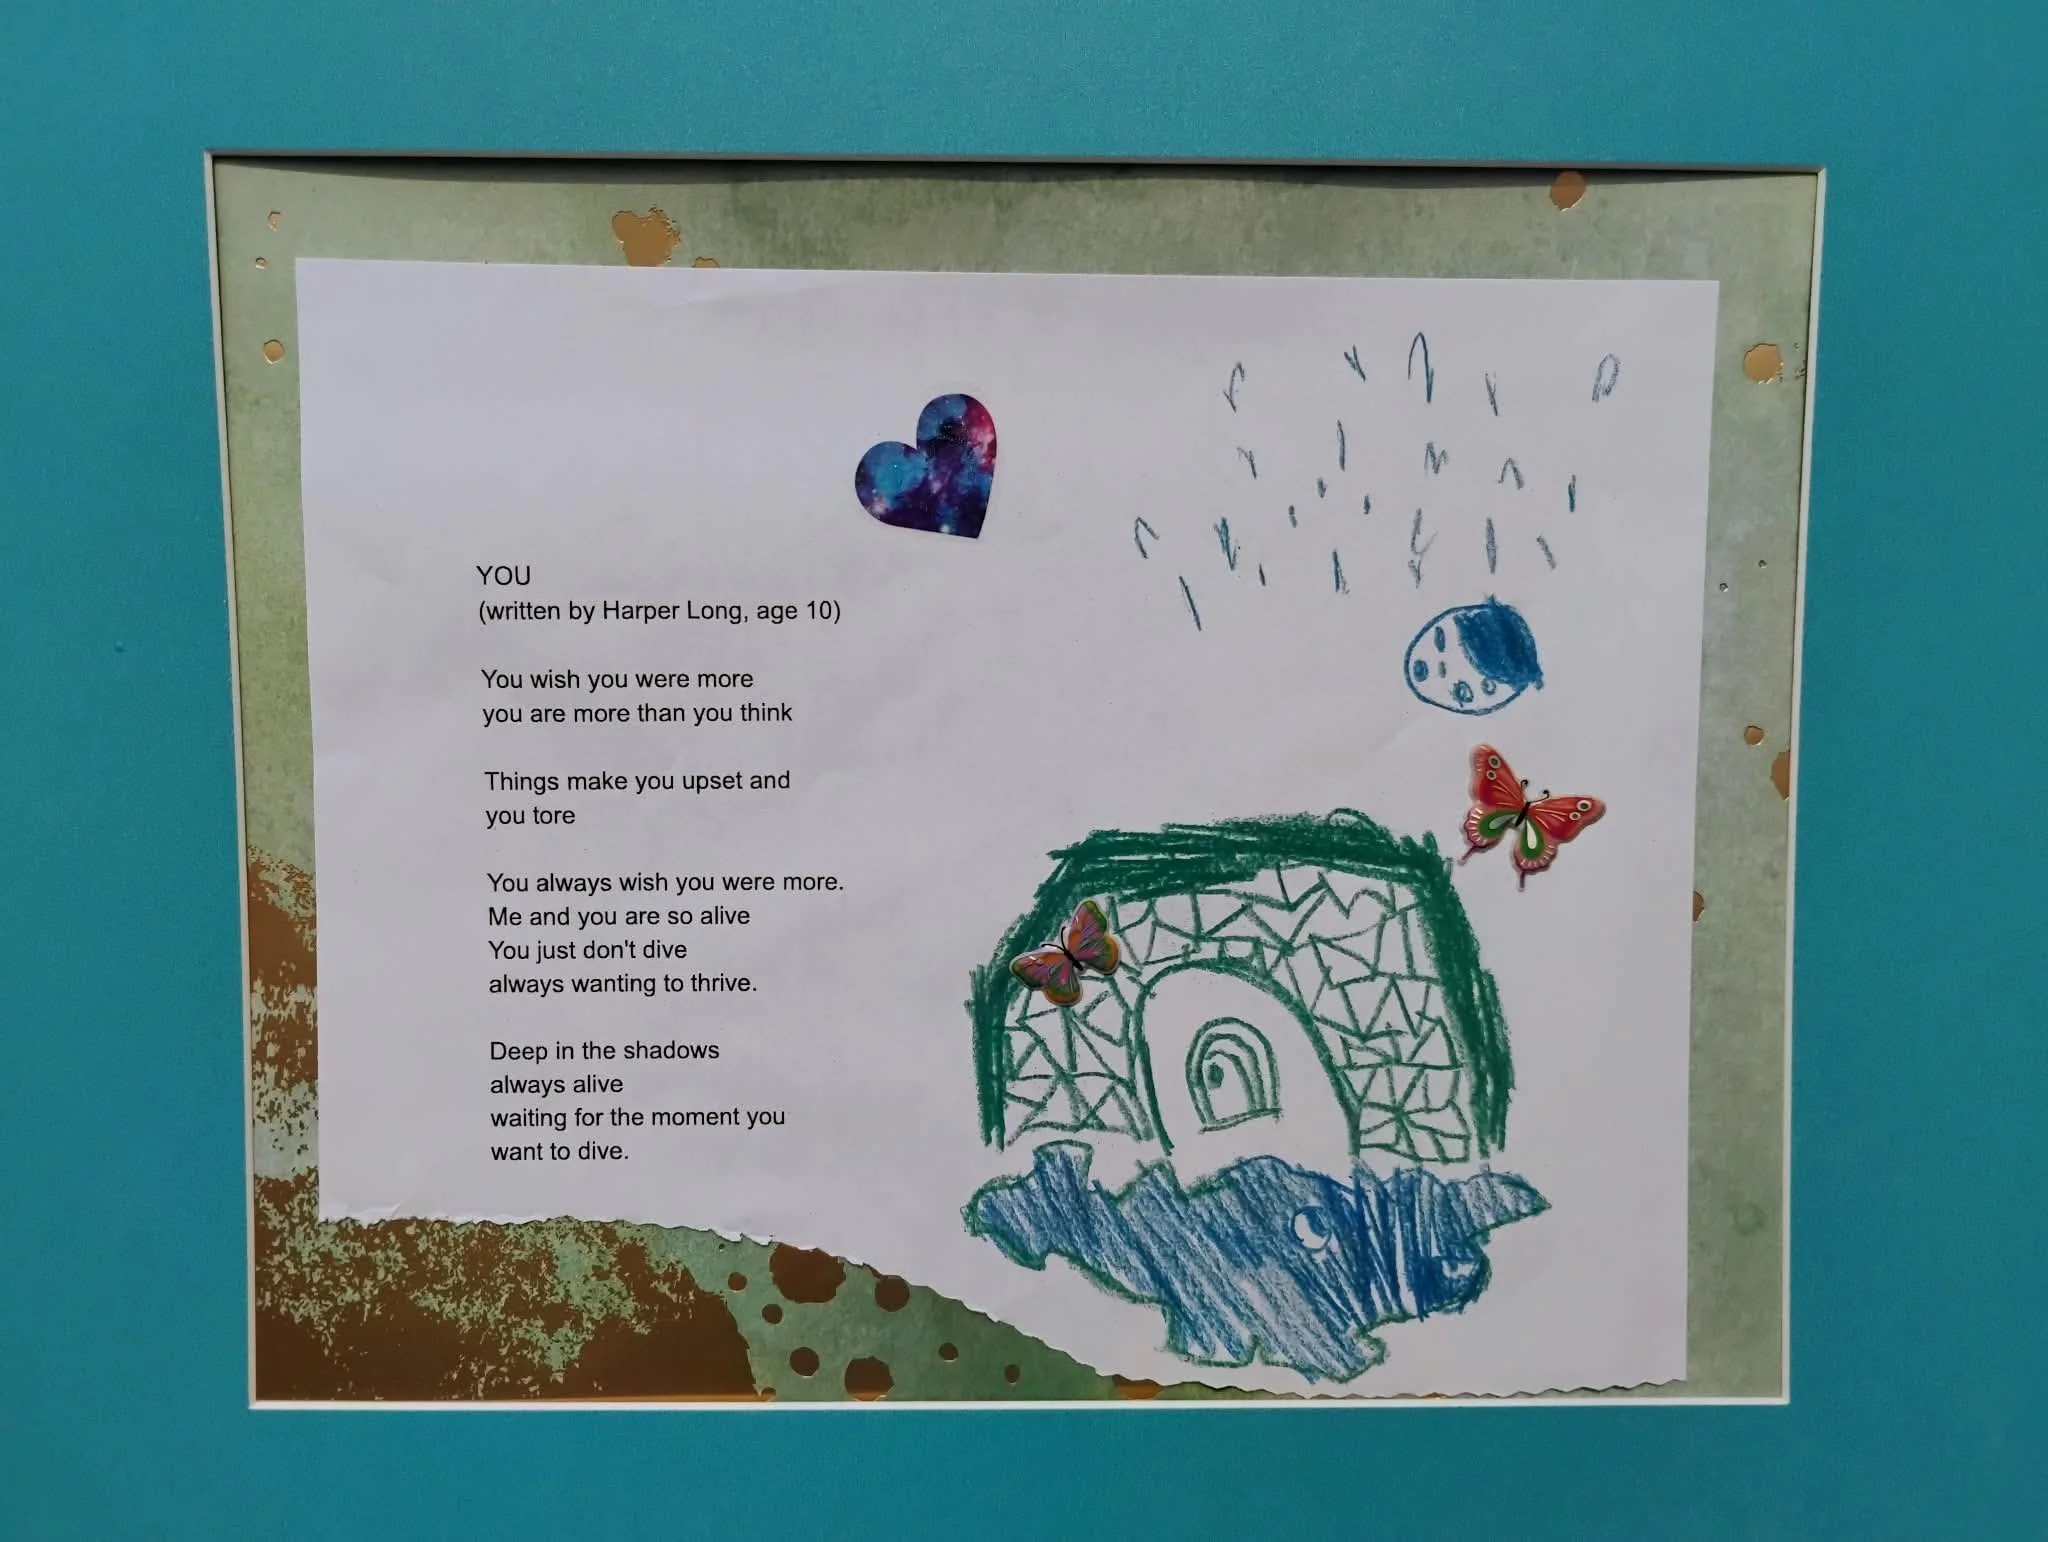 YOU
(written by Harper Long, age 10)
You wish you were more
you are more than you think
Things make you upset and
you tore
You always wish you were more.
Me and you are so alive
You just don't dive
always wanting to thrive.
Deep in the shadows
always alive
waiting for the moment you
want to dive.